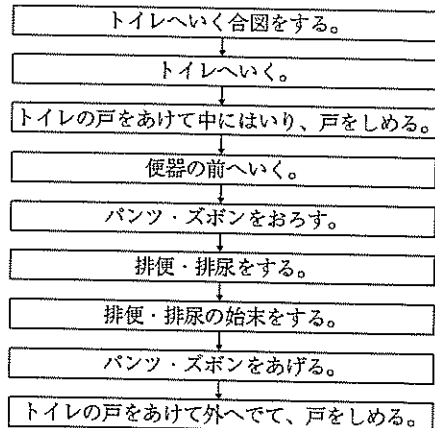 トイレへいく合図をする。
トイレへいく。
トイレの戸をあけて中にはいり、戸をしめる。
便器の前へいく。
パンツ・ズボンをおろす。
排便・排尿をする。
排便・排尿の始末をする。
パンツ・ズボンをあげる。
トイレの戸をあけて外へでて、戸をしめる。